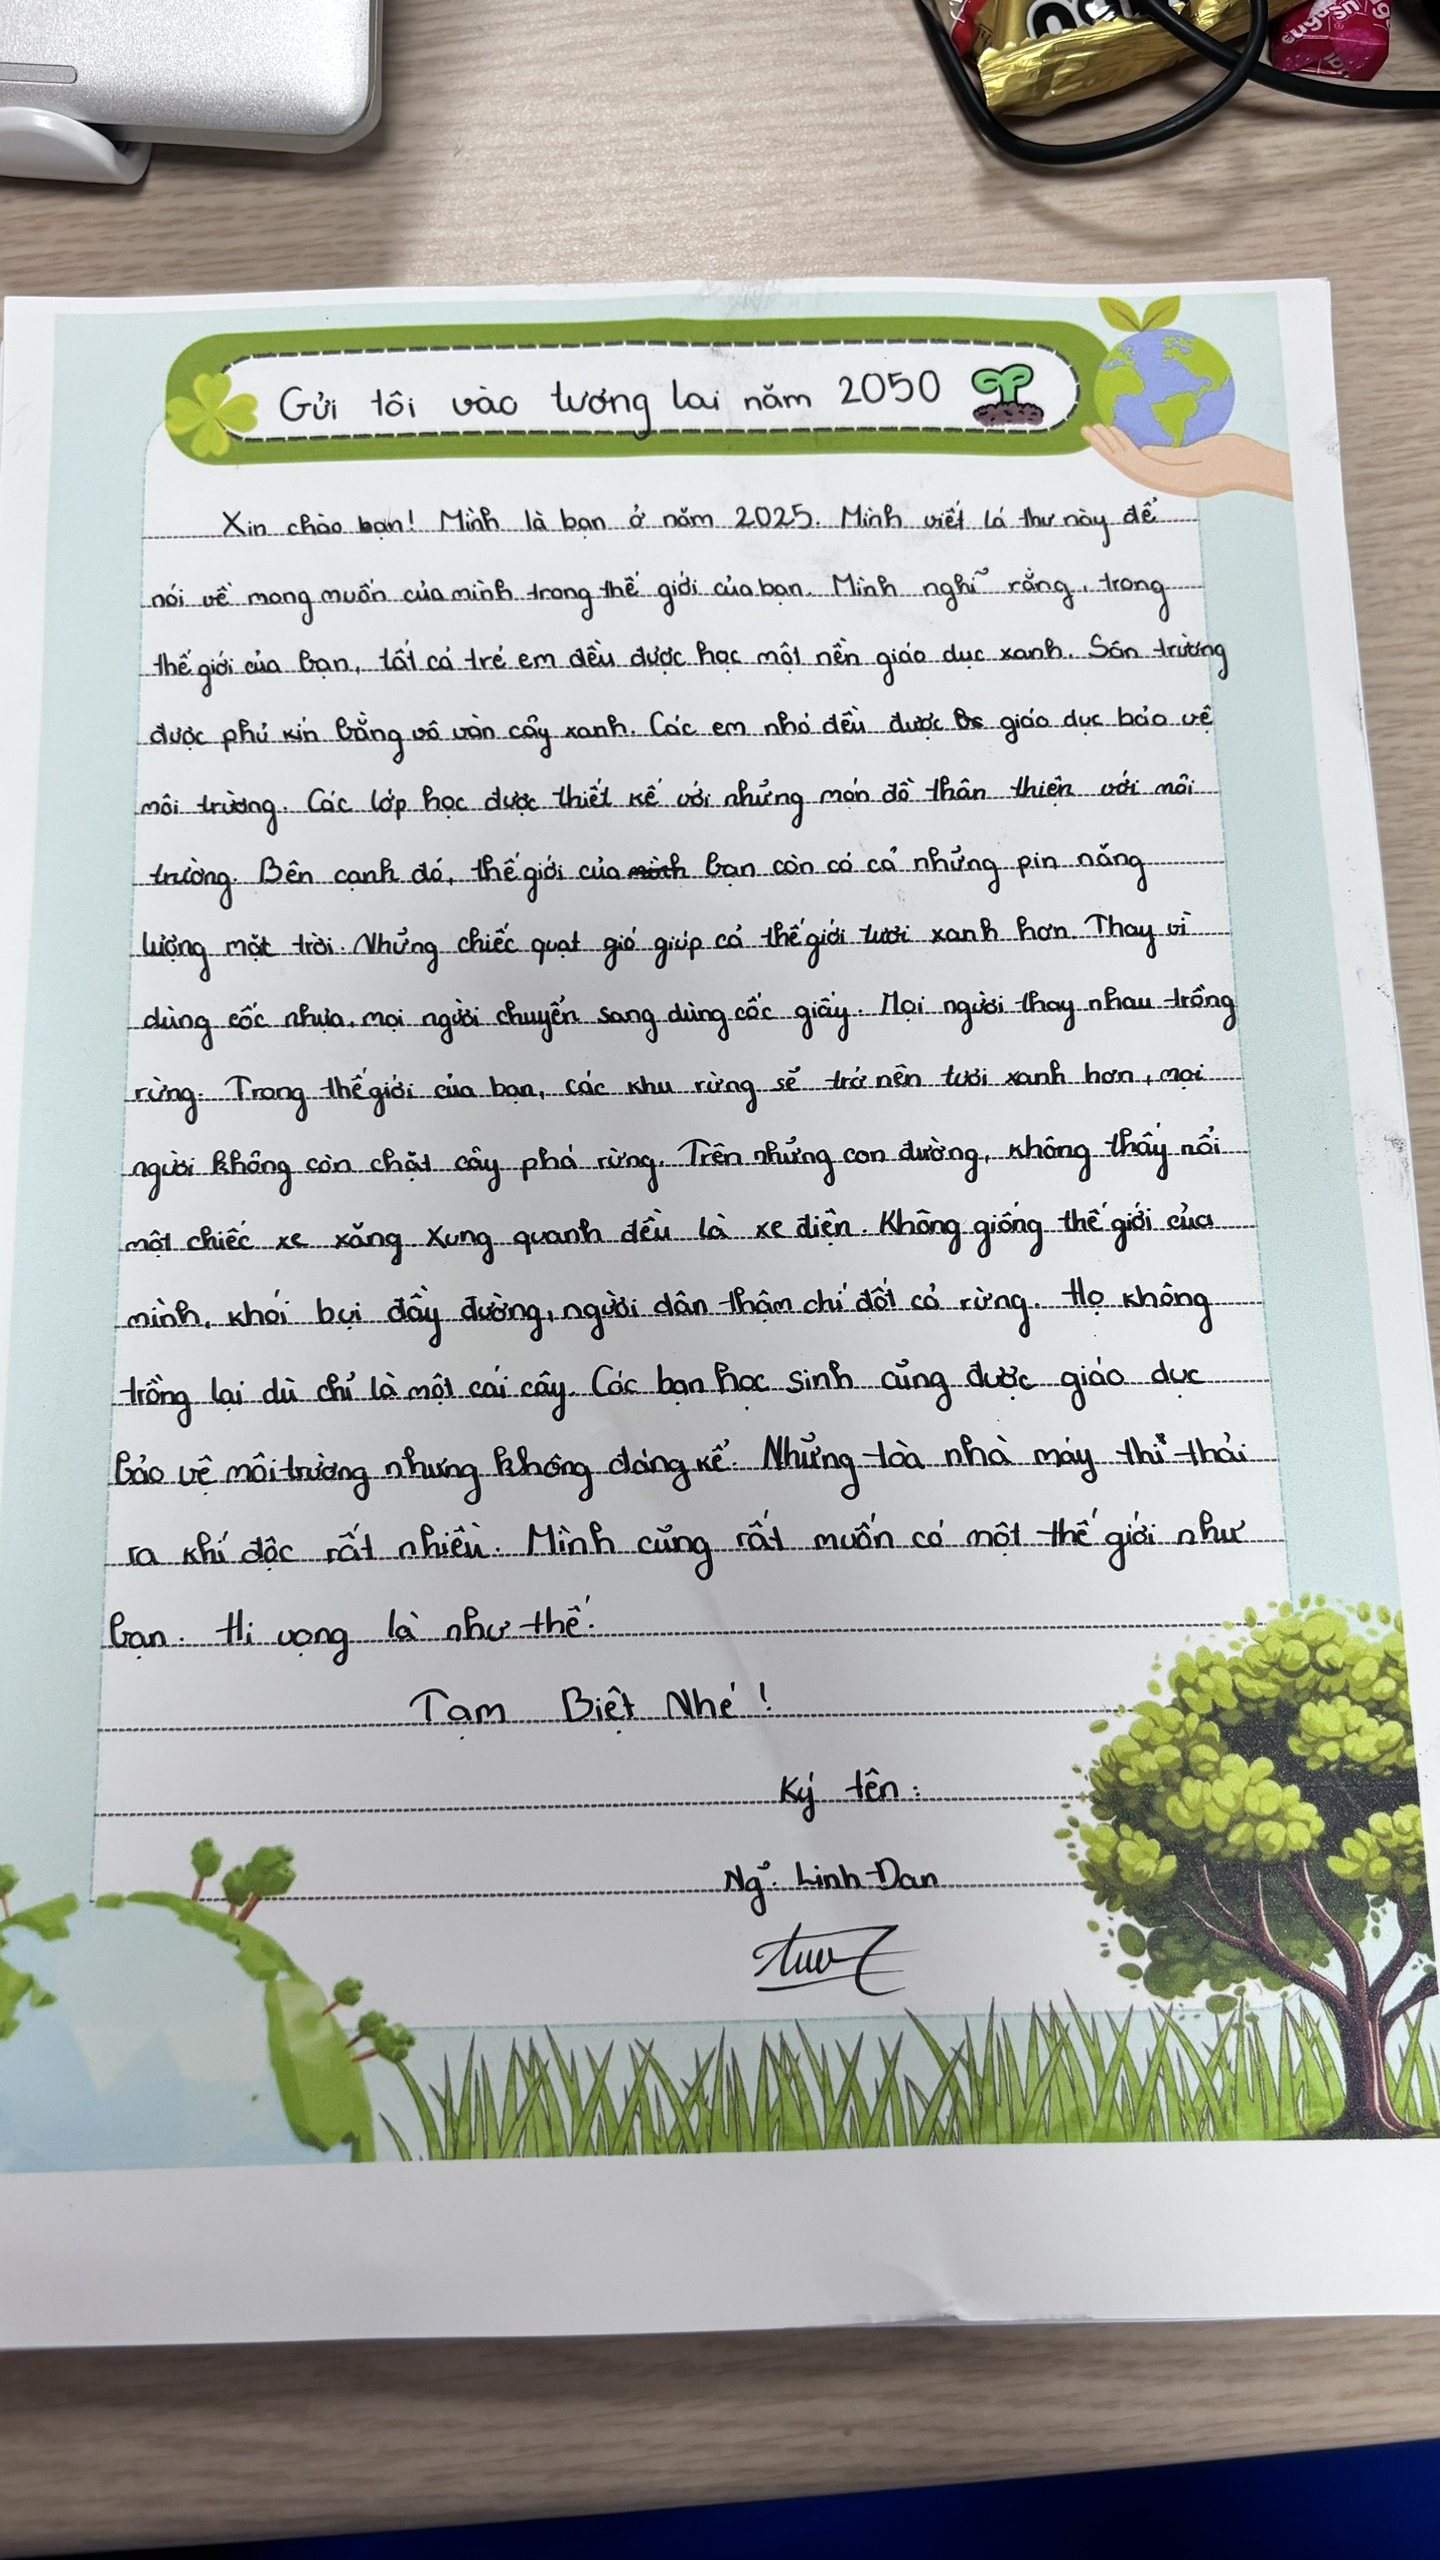 Gửi tôi vào tương lai năm 2050
Xin chào bạn! Mình là bạn ở năm 2025. Mình viết lá thư này để
nói về mong muốn của mình trong thế giới của bạn. Mình nghĩ rằng, trong
thế giới của bạn, tất cả trẻ em đều được học một nền giáo dục xanh. Sân trường
được phủ kín bằng vô vàn cây xanh. Các em nhỏ đều được giáo dục bảo vệ
môi trường. Các lớp học được thiết kế với những món đồ thân thiện với môi
trường. Bên cạnh đó, thế giới của bạn còn có cả những pin năng
lượng mặt trời. Những chiếc quạt gió giúp cả thế giới tươi xanh hơn. Thay vì
dùng cốc nhựa, mọi người chuyển sang dùng cốc giấy. Mọi người thay nhau trồng
rừng. Trong thế giới của bạn, các khu rừng sẽ trở nên tươi xanh hơn, mọi
người không còn chặt cây phá rừng. Trên những con đường, không thấy nổi
một chiếc xe xăng. Xung quanh đều là xe điện. Không giống thế giới của
mình, khói bụi đầy đường, người dân thậm chí đốt cả rừng. Họ không
trồng lại dù chỉ là một cái cây. Các bạn học sinh cũng được giáo dục
bảo vệ môi trường nhưng không đáng kể. Những tòa nhà máy thì thải
ra khí độc rất nhiều. Mình cũng rất muốn có một thế giới như
bạn. Hi vọng là như thế.
Tạm Biệt Nhé!
Ký tên:
Ng̃. Linh Đan